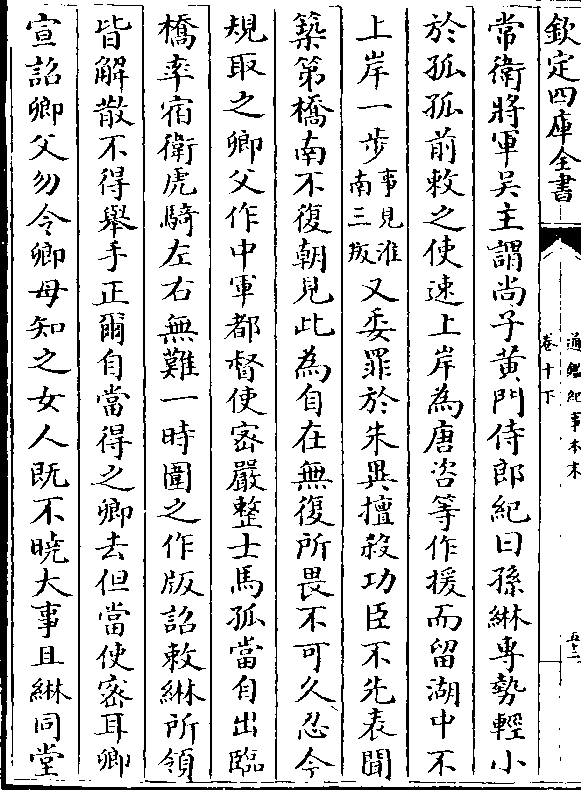 欽定四庫全書
通鑑紀事本末
卷十下
五十二
常衛將軍吳主謂尚子黃門侍郎紀曰孫綝專勢輕小
於孤孤前敕之使速上岸為唐咨等作援而留湖中不
上岸一步事見淮南三叛又委罪於朱異擅殺功臣不先表聞
築第橋南不復朝見此為自在無復所畏不可久忍今
規取之卿父作中軍都督使宻嚴整士馬孤當自出臨
橋率宿衛虎騎左右無難一時圍之作版詔敕綝所領
皆解散不得舉手正爾自當得之卿去但當使宻耳卿
宣詔卿父勿令卿母知之女人既不曉大事且綝同堂